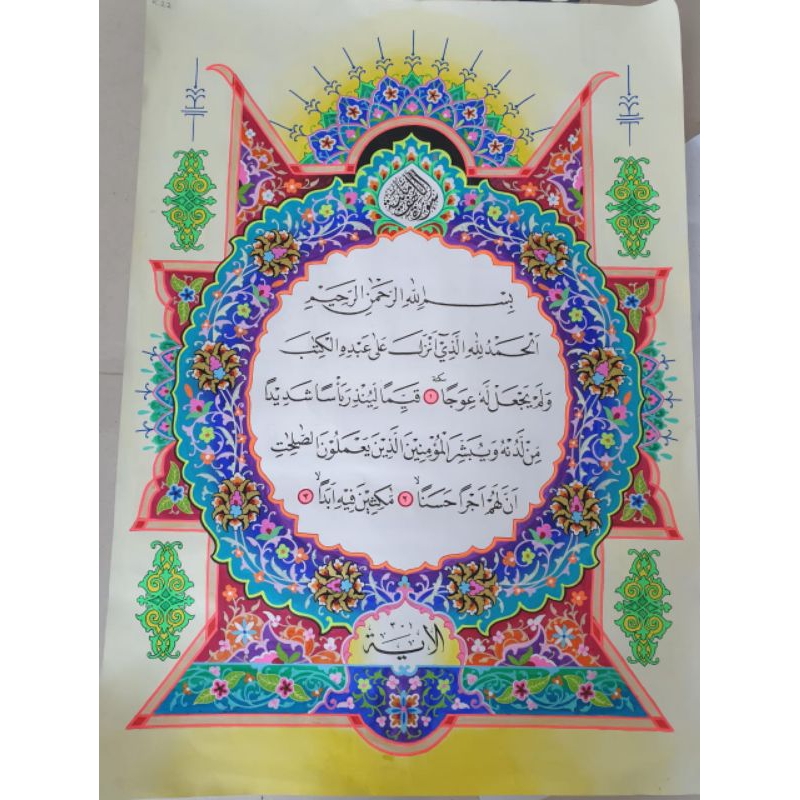 سورة الكهف مكية
بِسْمِ اللهِ الرَّحْمٰنِ الرَّحِيْمِ
اَلْحَمْدُ لِلّٰهِ الَّذِيْٓ اَنْزَلَ عَلٰى عَبْدِهِ الْكِتٰبَ
وَلَمْ يَجْعَلْ لَّهٗ عِوَجًا ۜ ١ قَيِّمًا لِّيُنْذِرَ بَأْسًا شَدِيْدًا
مِّنْ لَّدُنْهُ وَيُبَشِّرَ الْمُؤْمِنِيْنَ الَّذِيْنَ يَعْمَلُوْنَ الصّٰلِحٰتِ
اَنَّ لَهُمْ اَجْرًا حَسَنًاۙ ٢ مَّاكِثِيْنَ فِيْهِ اَبَدًاۙ ٣
الاية